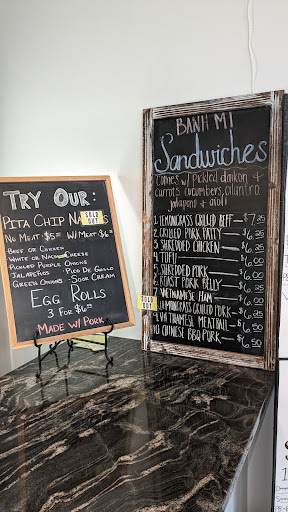 TRY OUR:
PITA CHIP NA
SOLD OUT
NO MEAT $5 W/ MEAT $6
BEEF OR CHICKEN
WHITE OR NACHO CHEESE
PICKLED PURPLE ONIONS
JALAPEÑOS · PICO DE GALLO
GREEN ONIONS · SOUR CREAM
EGG ROLLS
3 FOR $6
MADE W/ PORK
BANH MI
Sandwiches
comes w/ pickled daikon &
carrots, cucumbers, cilantro
jalapeno & aioli
1. LEMONGRASS GRILLED BEEF — $7.25
2. GRILLED PORK PATTY — $6.25
3. SHREDDED CHICKEN — $6.25
4. TOFU
5. SHREDDED PORK
6. ROAST PORK BELLY
7. VIETNAMESE HAM
SOLD OUT
8. LEMONGRASS GRILLED PORK
9. VIETNAMESE MEATBALL
10. CHINESE BBQ PORK — $6.50